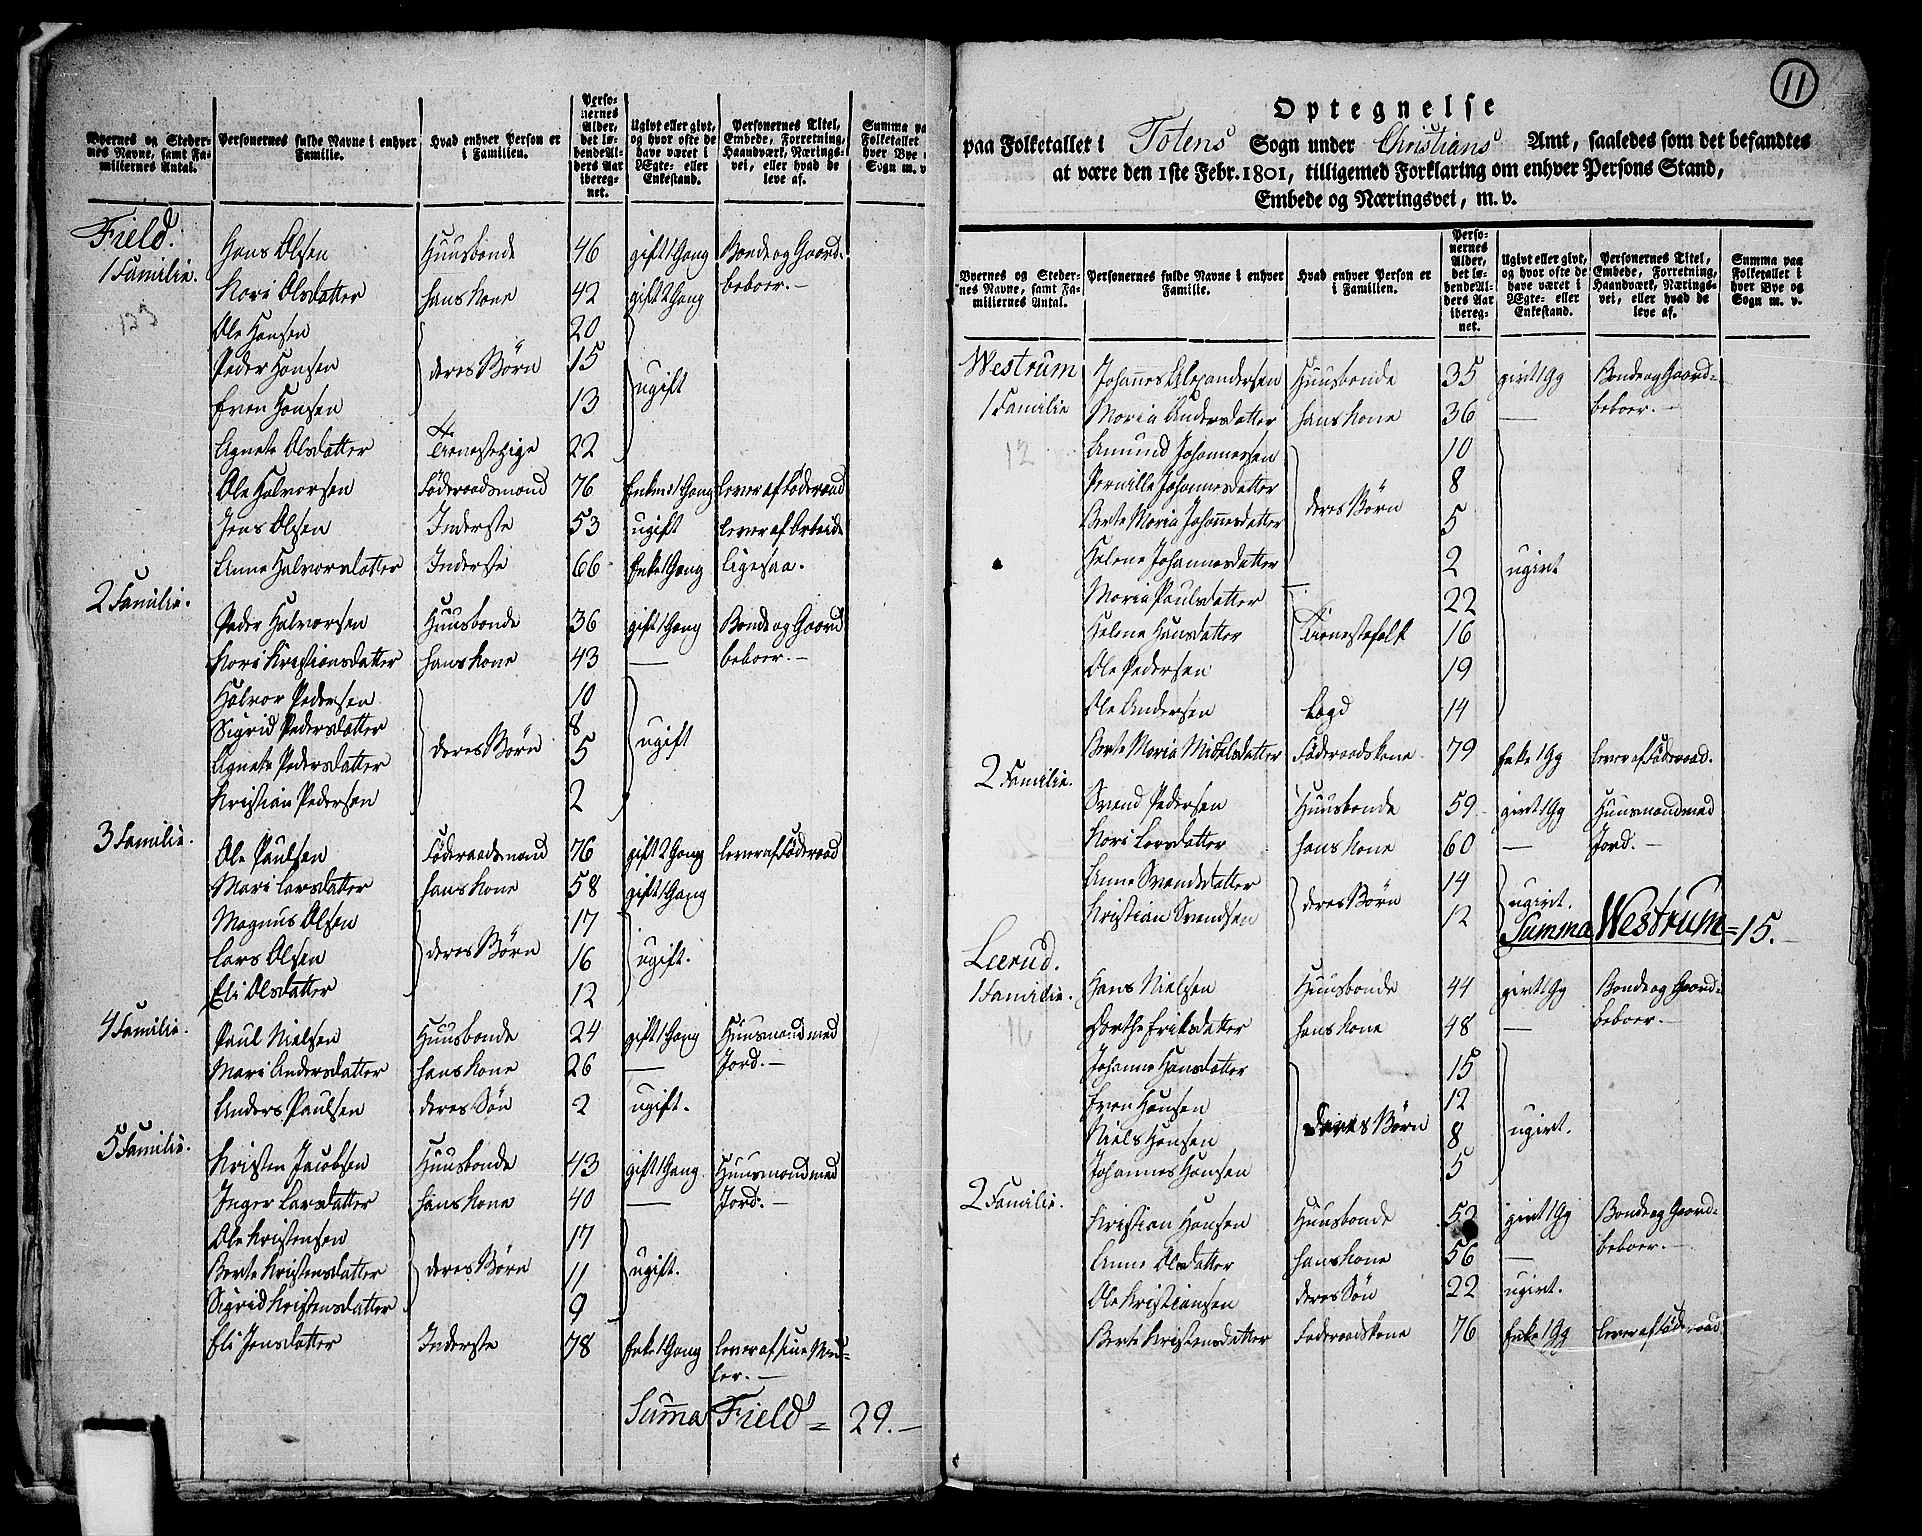 Byernes og Steder-
nes Navne, samt Fa-
miliernes Antal.
Personernes fulde Navne i enhver
Familie.
Hvad enhver Person er
i Familien.
Perso-
nernes
Alder,
det lø-
bende Al-
ders Aar
ibereg-
net.
Ugivt eller givt,
og hvor ofte de
have været i
Ægte- eller
Enkestand.
Personernes Titel,
Embede, Forretning,
Haandværk, Nærings-
vei, eller hvad de
leve af.
Summa pa
Folketallet
hver Bye
Sogn m. v
Field.
1 Familie. Hans Olsen Huusbonde 46 gift 1 Gang Bonde og Gaard-
Kari Olsdatter hans Kone 42 gift 2 Gang beboer.-
Ole Hansen 20
Peder Hansen deres Børn 15 ugift
Even Hansen 13
Agnete Olsdatter Tienestepige 22
Ole Halvorsen Föderaadsmand 76 Enkem 1 Gang lever af Föderaad
Jens Olsen Inderste 53 ugift lever af Arbeide
Anne Halvorsdatter Inderste 66 Enke 1 Gang ligesaa.
2 Familie.
Peder Halvorsen Huusbonde 36 gift 1 Gang Bonde og Gaard
Kari Kristiansdatter hans Kone 43 — beboer.-
Halvor Pedersen 10
Sigrid Pedersdatter 8
Agnete Pedersdatter deres Børn 5 ugift
Kristian Pedersen 2
3 Familie.
Ole Paulsen Föderaadsmand 76 gift 2 Gang lever af Föderaad
Mari Larsdatter hans Kone 58 gift 1 Gang
Magnus Olsen 17
Lars Olsen deres Børn 16 ugift.
Eli Olsdatter 12
4 Familie.
Paul Nielsen Huusbonde 24 gift 1 Gang Huusmand med
Mari Andersdatter hans Kone 26 — Jord.-
Anders Paulsen deres Søn 2 ugift.
5 Familie.
Kristen Jacobsen Huusbonde 43 gift 1 Gang Huusmand med
Inger Larsdatter hans Kone 40 — Jord.-
Ole Kristensen 17
Berte Kristensdatter deres Børn 11 ugift.
Sigrid Kristensdatter 9
Eli Jensdatter Inderste 78 Enke 1 Gang lever af sine Mid-
ler.-
Summa Field = 29.-
11
Optegnelse
paa Folketallet i Totens Sogn under Christians Amt, saaledes som det befandtes
at være den 1ste Febr. 1801, tilligemed Forklaring om enhver Persons Stand,
Embede og Næringsvei, m. v.
Byernes og Steder-
nes Navne, samt Fa-
miliernes Antal.
Personernes fulde Navne i enhver
Familie.
Hvad enhver Person er
i Familien.
Perso-
nernes
Alder,
det lø-
bende Al-
ders Aar
ibereg-
net.
Ugivt eller givt,
og hvor ofte de
have været i
Ægte- eller
Enkestand.
Personernes Titel,
Embede, Forretning,
Haandværk, Nærings-
vei, eller hvad de
leve af.
Summa paa
Folketallet i
hver Bye og
Sogn m. v.
Westrum Johannes Alexandersen Huusbonde 35 givt 1 Gg Bonde og Gaard-
1 Familie Maria Andersdatter hans Kone 36 — beboer.-
12 Amund Johannesen 10
Pernille Johannesdatter 8
Berte Maria Johannesdatter deres Børn 5
Helene Johannesdatter 2 ugivt
Maria Paulsdatter 22
Helene Hansdatter Tienestefolk 16
Ole Pedersen 19
Ole Andersen Lagd 14
Berte Maria Mikkelsdatter Föderaadskone 79 Enke 1 Gg lever af Föderaad.
2 Familie.
Svend Pedersen Huusbonde 59 givt 1 Gg Huusmand med
Kari Larsdatter hans Kone 60 — Jord.-
Anne Svendsdatter 14
Kristian Svendsen deres Børn 12 ugivt.
Summa Westrum = 15.-
Leerud.
1 Familie. Hans Nielsen Huusbonde 44 givt 1 Gg Bonde og Gaard-
Dorthe Eriksdatter hans Kone 48 — beboer.-
Johanne Hansdatter 15
Even Hansen 12
Niels Hansen deres Børn 8 ugivt.
Johannes Hansen 5
2 Familie.
Kristian Hansen Huusbonde 52 givt 1 Gg Bonde og Gaard-
Anne Olsdatter hans Kone 56 — beboer.-
Ole Kristiansen deres Søn 22 ugivt.
Berte Kristensdatter Föderaadskone 76 Enke 1 Gg lever af Föderaad